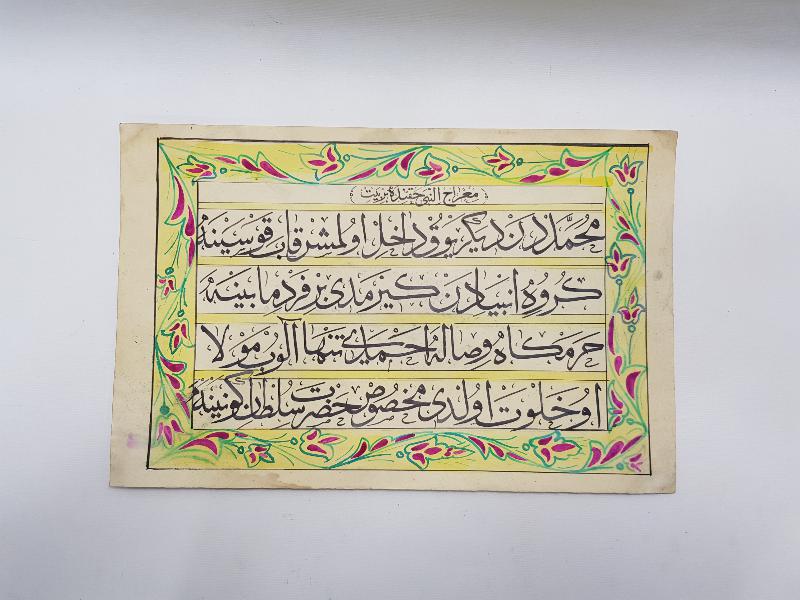 معراج النبی حقنده بر بیت
محمددن دیگر یوق داخل اولمش قاب قوسینه
کروه انبیادن کیرمدی بر فرد مابینه
حرمکاه وصاله احمدی تنها آلوب مولا
او خلوت اولدی مخصوص حضرت سلطان کونینه